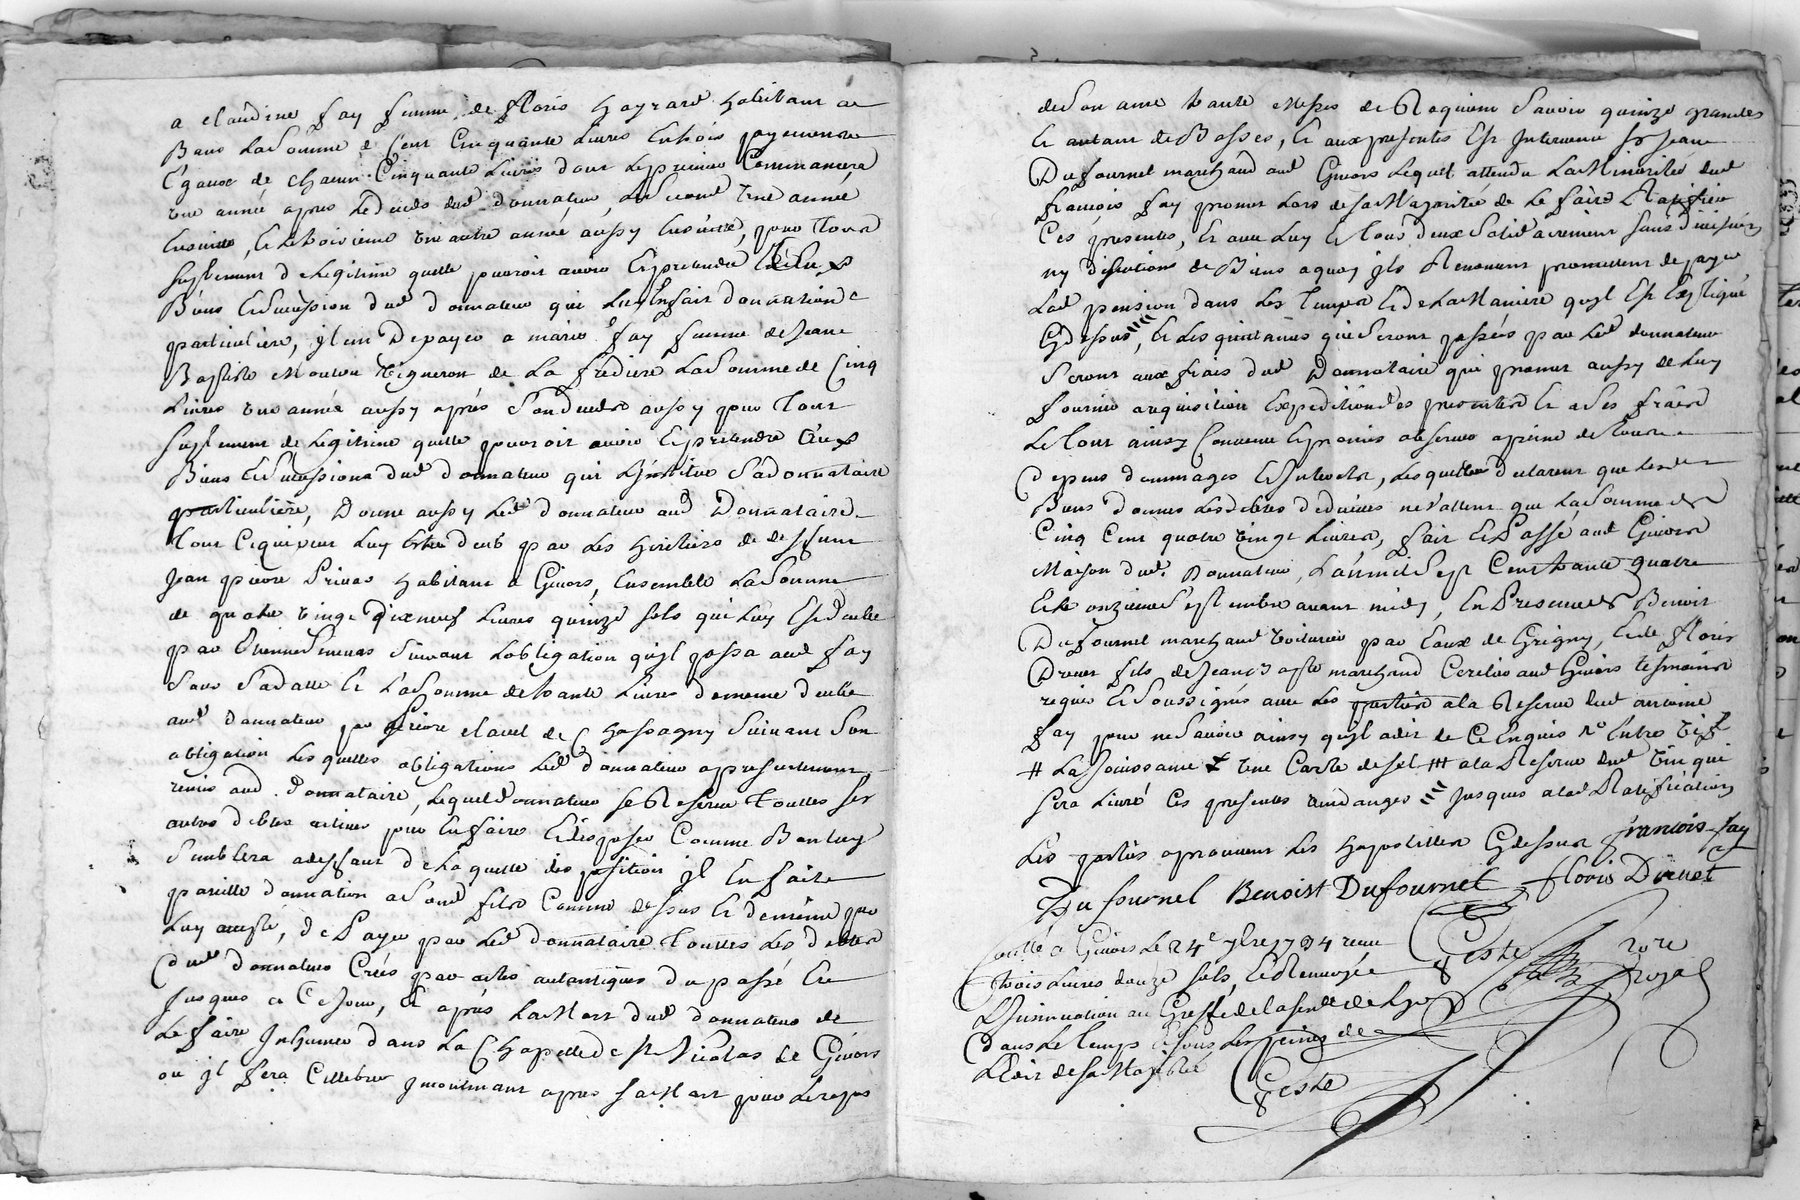 a claudine fay femme de floris hayrard habitant a
Bans La Somme de Cent Cinquante Livres En trois payements
Egaux de chacun Cinquante Livres dont Le premier Commancera
une année apres Le deceds dud donnateur, Le second une année
Ensuitte, Et Le troisieme une autre année aussy Ensuitte, pour Tous
suplement de Legitime quelle pouroit avoir Et pretendre Es
Biens Et Succession dud donnateur qui Luy En fait donnation
particuliere, plus De payer a marie fay femme de Jean
Baptiste Mouton Vigneron de La fredière La Somme de Cinq
Livres une année aussy après Son deceds aussy pour Tout
suplement de Legitime quelle pouroit avoir Et pretendre Es
Biens Et Successions dud donnateur qui L'institue Sa donnataire
particulière, Donne aussy Led donnateur aud Donnataire
Tout Ce qui peut Luy Estre deub par Les heritiers de deffunt
Jean pierre Privas habitant a Givors, Ensemble La Somme
de quatre vingt dix neuf Livres quinze sols qui Luy Est deube
par Etienne Suivant L'obligation qu'il passa aud fay
Sous Sa datte Et La Somme de trante Livres de meme deube
aud donnateur par Pierre clavel de Chassagny Suivant Son
obligation Les quelles obligations Led donnateur a presentement
remis aud donnataire, Lequel donnateur Se Reserve Touttes Ses
autres debtes actives pour En faire Et disposer Comme Bon Luy
Semblera a deffaut de La quelle disposition il En faite
pareille donnation a Sond fils Comme dessus Et de meme que
Luy accepte, De Payer par Led donnataire Touttes Les debtes
dud donnateur Créés par actes autantiques du passé Et
Jusques a Ce jour, Et après La Mort dud donnateur de
Le faire Inhumer dans La Chapelle de St Nicolas de Givors
ou il fera Cellebrer Incontinant apres Sa Mort pour Le repos
de Son ame trante Messes de Requiem Savoir quinze grandes
Et autant de Basses, Et aux presentes Est Intervenu Sr Jean
Dufournel marchand aud Givors Lequel attendu La Minorité dud
françois fay promet Lors de Sa Majorité de Le faire Ratiffier
Ces presentes, Et avec Luy Et Tous deux Solidairement Sans division
ny discutions de Biens a quoy ils Renoncent promettent de payer
Lad pension dans Les Temps Et de La Maniere qu'il Est Expliqué
Cy dessus, Et Les quittances qui Seront passées par Led donnateur
Seront aux frais dud Donnataire qui promet aussy de Luy
fournir a requisition Expedition des presentes Et a Ses frais
Le Tout ainsy Convenu Et promis observer a peine de Tous
Depens dommages Et Interests, Lesquelles declarent que Les
Biens donnés Les debtes deduites ne vallent que La Somme de
Cinq Cent quatre vingt Livres, fait Et Passé aud Givors
Maison dud Donnateur, L'an mil Sept Cent trante quatre
Et Le onzieme Septembre avant midy, En Presence de Benoit
Dufournel marchand voiturier par Eaux de Grigny, Et de floris
Drevet fils de Jean Baptiste marchand aud Givors temoins
requis Et Soussignés avec Les parties a La Reserve dud antoine
fay pour ne Savoir ainsy qu'il a dit de Ce Enquis
# La Jouissance & une Carte de Sel # a La Reserve dud vin qui
Sera Livré Ces presentes vandanges Jusques a Lad Ratiffication
Les parties aprouvent Les hapostilles Cy dessus francois fay
Dufournel Benoist Dufournel floris Drevet
Contllé a Givors Le 24e 7bre 1734 receu
Trois Livres douze sols, Et Renvoyée
L'Insinuation au Greffe de la Sen.ée de Lyon
dans Le Temps Et Sous Les peines de
L'Edit de Sa Majesté
Geste
Geste
nore
royal